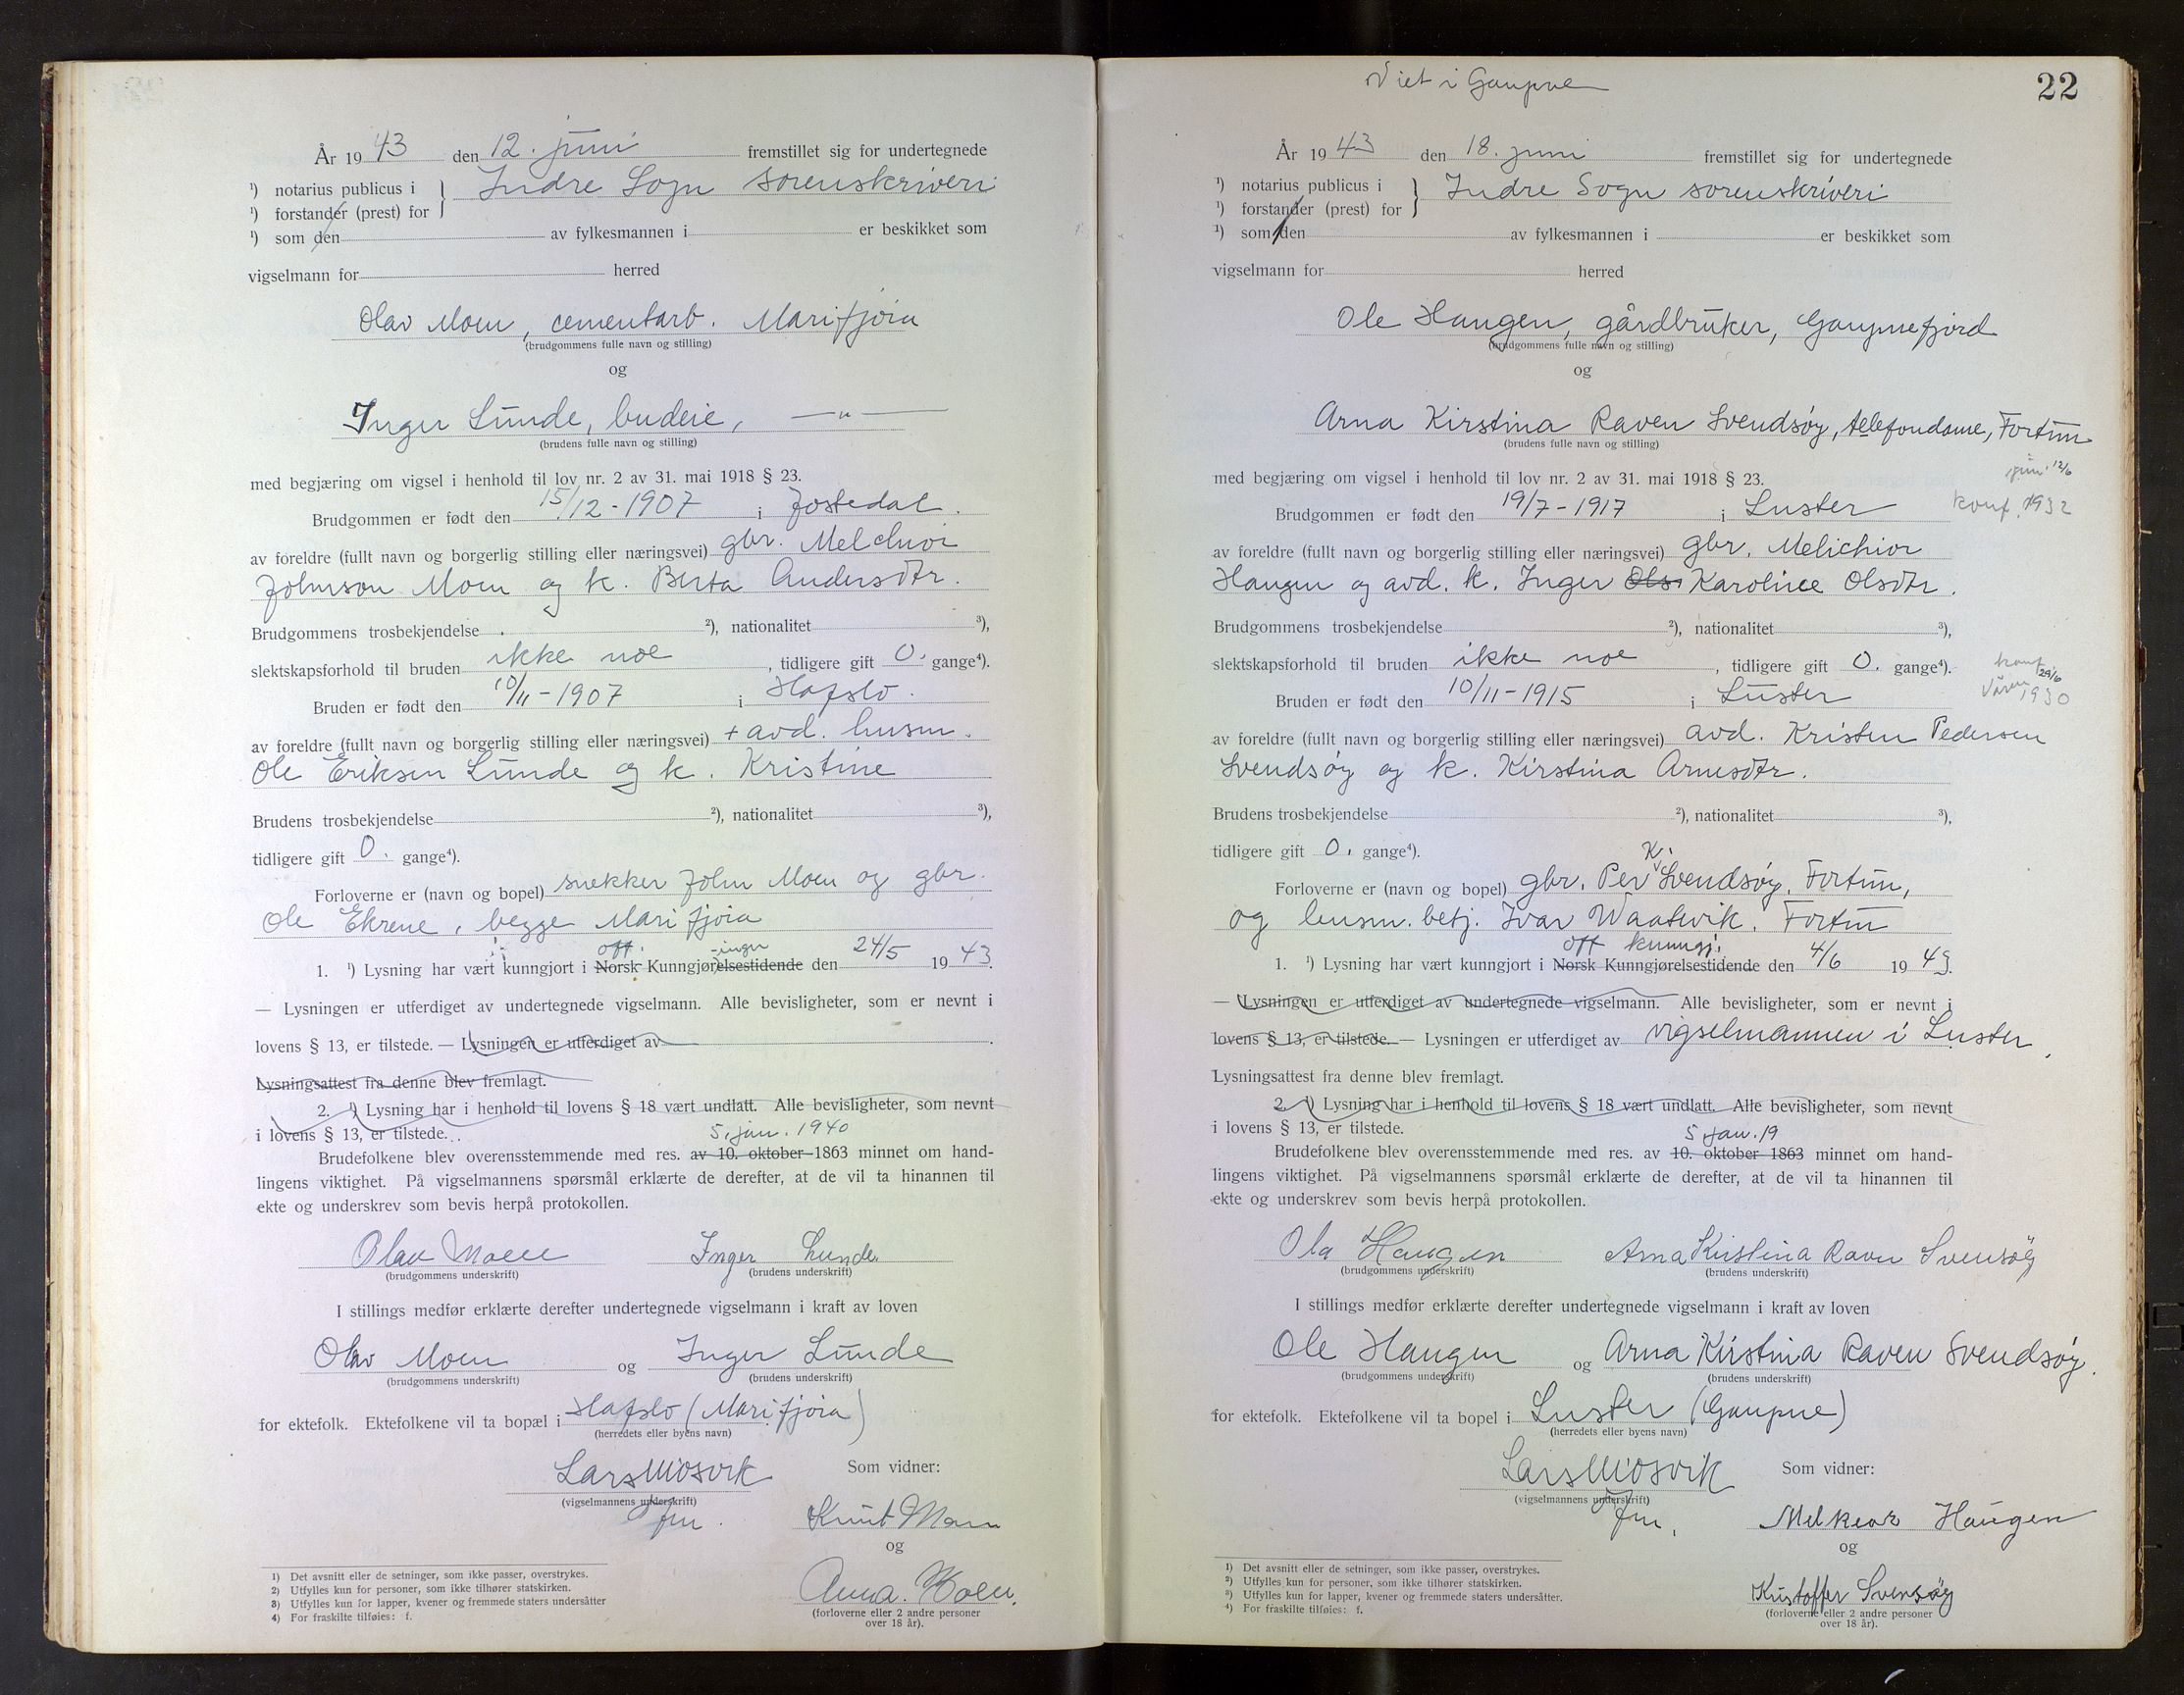 År 19 43 den 12. juni fremstillet sig for undertegnede
¹) notarius publicus i } Indre Sogn sorenskriveri
¹) forstander (prest) for
¹) som den av fylkesmannen i er beskikket som
vigselmann for herred
Olav Moen, cementarb. Marifjøra
(brudgommens fulle navn og stilling)
og
Inger Lunde, budeie, —"—
(brudens fulle navn og stilling)
med begjæring om vigsel i henhold til lov nr. 2 av 31. mai 1918 § 23.
Brudgommen er født den 15/12-1907 i Jostedal.
av foreldre (fullt navn og borgerlig stilling eller næringsvei) gbr. Melchior
Johnson Moen og k. Berta Andersdtr.
Brudgommens trosbekjendelse ²), nationalitet ³),
slektskapsforhold til bruden ikke noe, tidligere gift 0. gange⁴).
Bruden er født den 10/11-1907 i Hafslo.
av foreldre (fullt navn og borgerlig stilling eller næringsvei) + avd. husm.
Ole Eriksen Lunde og k. Kristine
Brudens trosbekjendelse ²), nationalitet ³),
tidligere gift 0. gange⁴).
Forloverne er (navn og bopel) snekker John Moen og gbr.
Ole Ekrene, begge Marifjøra
off. -inger
1. ¹) Lysning har vært kunngjort i Norsk Kunngjørelsestidende den 24/5 19 43.
— Lysningen er utferdiget av undertegnede vigselmann. Alle bevisligheter, som er nevnt i
lovens § 13, er tilstede. — Lysningen er utferdiget av
Lysningsattest fra denne blev fremlagt.
2. ¹) Lysning har i henhold til lovens § 18 vært undlatt. Alle bevisligheter, som nevnt
i lovens § 13, er tilstede.
5. jan. 1940
Brudefolkene blev overensstemmende med res. av 10. oktober 1863 minnet om hand-
lingens viktighet. På vigselmannens spørsmål erklærte de derefter, at de vil ta hinannen til
ekte og underskrev som bevis herpå protokollen.
Olav Moen Inger Lunde
(brudgommens underskrift) (brudens underskrift)
I stillings medfør erklærte derefter undertegnede vigselmann i kraft av loven
Olav Moen og Inger Lunde
(brudgommens underskrift) (brudens underskrift)
for ektefolk. Ektefolkene vil ta bopæl i Hafslo (Marifjøra)
(herredets eller byens navn)
Lars Midsvik Som vidner:
(vigselmannens underskrift)
fm. Knut Moen
og
Anna Moen.
(forloverne eller 2 andre personer
over 18 år).
1) Det avsnitt eller de setninger, som ikke passer, overstrykes.
2) Utfylles kun for personer, som ikke tilhører statskirken.
3) Utfylles kun for lapper, kvener og fremmede staters undersåtter
4) For fraskilte tilføies: f.
Viet i Gaupne
22
År 19 43 den 18. juni fremstillet sig for undertegnede
¹) notarius publicus i } Indre Sogn sorenskriveri
¹) forstander (prest) for
¹) som den av fylkesmannen i er beskikket som
vigselmann for herred
Ole Haugen, gårdbruker, Gaupnefjord
(brudgommens fulle navn og stilling)
og
Arna Kirstina Raven Svendsøy, telefondame, Fortun
(brudens fulle navn og stilling)
med begjæring om vigsel i henhold til lov nr. 2 av 31. mai 1918 § 23.
12/6
Brudgommen er født den 19/7-1917 i Luster konf. 1932
av foreldre (fullt navn og borgerlig stilling eller næringsvei) gbr. Melichior
Haugen og avd. k. Inger Ols Karoline Olsdtr.
Brudgommens trosbekjendelse ²), nationalitet ³),
slektskapsforhold til bruden ikke noe, tidligere gift 0. gange⁴).
konf. 29/6
Bruden er født den 10/11-1915 i Luster Våren 1930
av foreldre (fullt navn og borgerlig stilling eller næringsvei) avd. Kristen Pedersen
Svendsøy og k. Kirstina Arnesdtr.
Brudens trosbekjendelse ²), nationalitet ³),
tidligere gift 0. gange⁴).
K.
Forloverne er (navn og bopel) gbr. Per Svendsøy, Fortun,
og husm. betj. Ivar Waatevik. Fortun
off kunngj.
1. ¹) Lysning har vært kunngjort i Norsk Kunngjørelsestidende den 4/6 19 43.
— Lysningen er utferdiget av undertegnede vigselmann. Alle bevisligheter, som er nevnt i
lovens § 13, er tilstede. — Lysningen er utferdiget av vigselmannen i Luster,
Lysningsattest fra denne blev fremlagt.
2. ¹) Lysning har i henhold til lovens § 18 vært undlatt. Alle bevisligheter, som nevnt
i lovens § 13, er tilstede.
5 jan. 19
Brudefolkene blev overensstemmende med res. av 10. oktober 1863 minnet om hand-
lingens viktighet. På vigselmannens spørsmål erklærte de derefter, at de vil ta hinannen til
ekte og underskrev som bevis herpå protokollen.
Ola Haugen Arna Kristina Raven Svensøy
(brudgommens underskrift) (brudens underskrift)
I stillings medfør erklærte derefter undertegnede vigselmann i kraft av loven
Ole Haugen og Arna Kirstina Raven Svendsøy.
(brudgommens underskrift) (brudens underskrift)
for ektefolk. Ektefolkene vil ta bopel i Luster (Gaupne)
(herredets eller byens navn)
Lars Midsvik Som vidner:
(vigselmannens underskrift)
fm. Melkear Haugen
og
Kristoffer Svensøy
(forloverne eller 2 andre personer
over 18 år).
¹) Det avsnitt eller de setninger, som ikke passer, overstrykes.
²) Utfylles kun for personer, som ikke tilhører statskirken.
³) Utfylles kun for lapper, kvener og fremmede staters undersåtter.
⁴) For fraskilte tilføies: f.